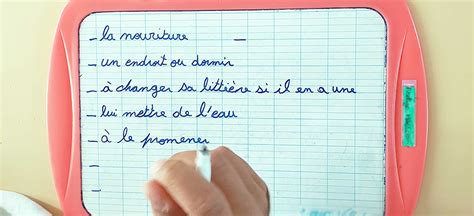 - la nouriture
- un endroit ou dormir
- à changer sa littière si il en a une
- lui mettre de l'eau
- à le promener
-
-